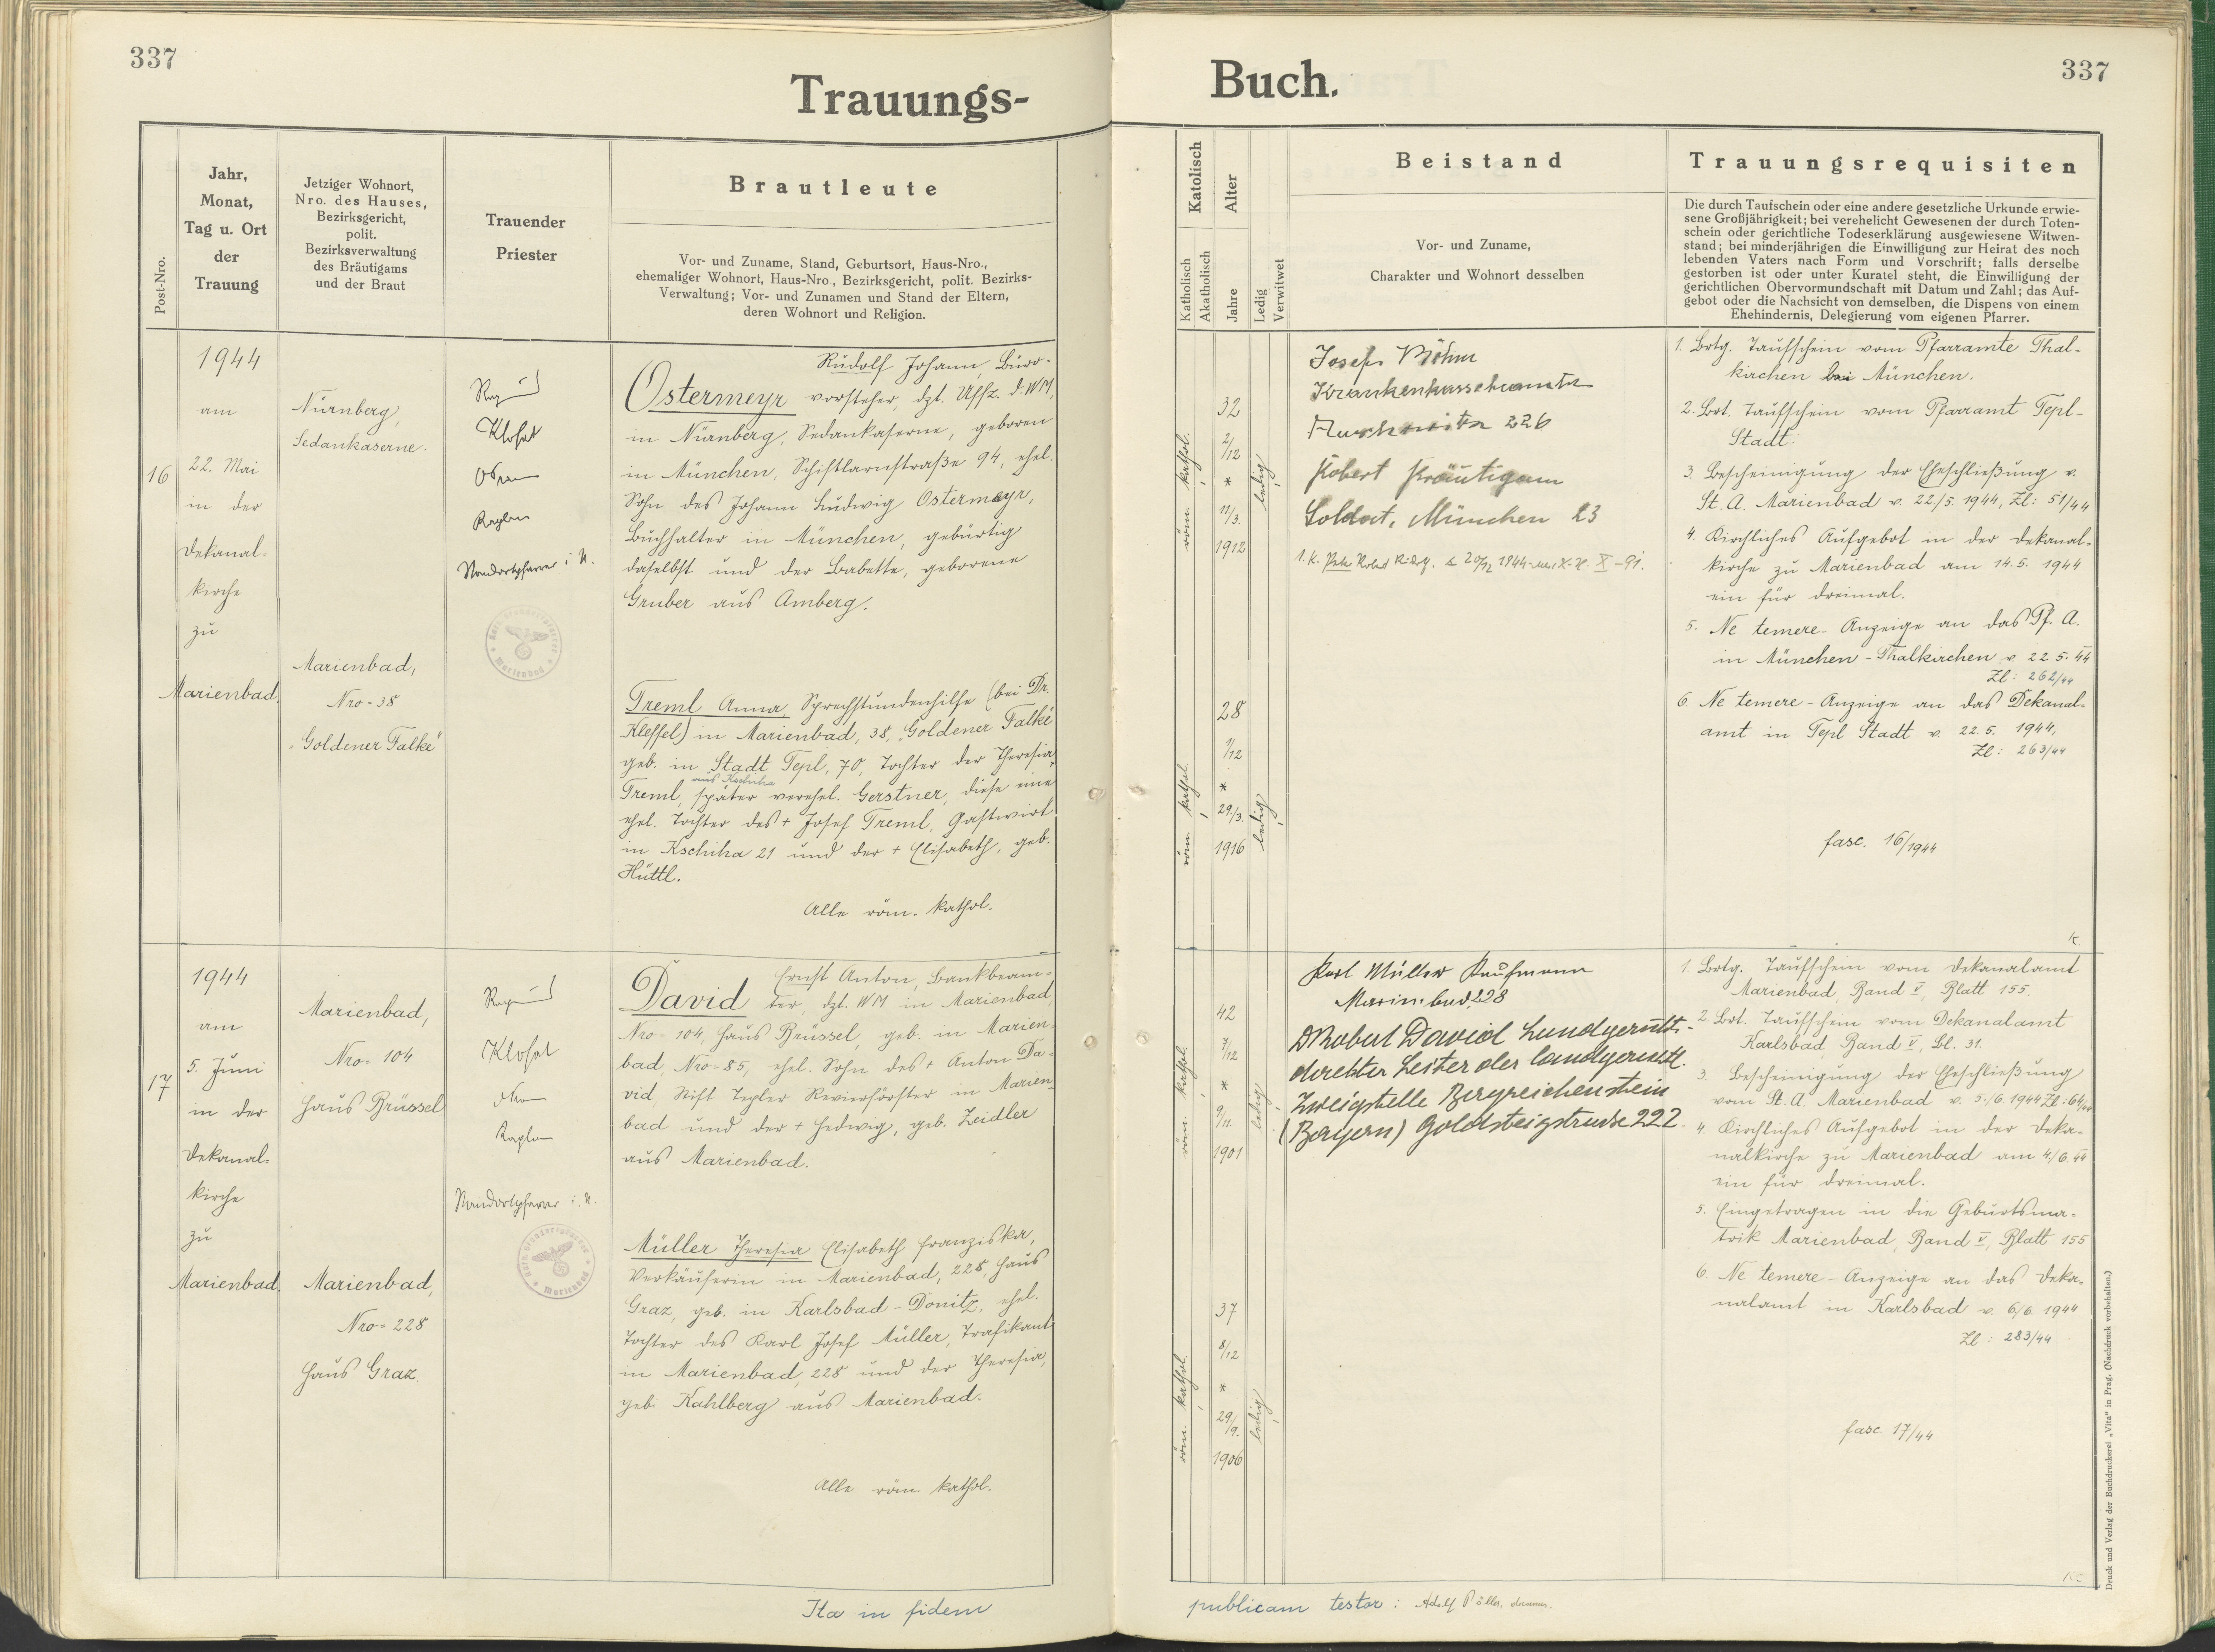 337
Trauungs-
Post-Nro.
Jahr,
Monat,
Tag u. Ort
der
Trauung
Jetziger Wohnort,
Nro. des Hauses,
Bezirksgericht,
polit.
Bezirksverwaltung
des Bräutigams
und der Braut
Trauender
Priester
Brautleute
Vor- und Zuname, Stand, Geburtsort, Haus-Nro.,
ehemaliger Wohnort, Haus-Nro., Bezirksgericht, polit. Bezirks-
Verwaltung; Vor- und Zunamen und Stand der Eltern,
deren Wohnort und Religion.
16
1944
am
22. Mai
in der
Dekanal-
kirche
zu
Marienbad.
Nürnberg,
Sedankaserne.
Marienbad,
Nro = 38
"Goldener Falke"
Klohat
Kaplan
Standortpfarrer i. N.
Marienbad
Rudolf Johann, Büro-
Ostermeyr vorsteher, dzt. Uffz. d. WM,
in Nürnberg, Sedankaserne, geboren
in München, Schiftlarnstraße 94, ehel.
Sohn des Johann Ludwig Ostermeyr,
Buchhalter in München, gebürtig
daselbst und der Babette, geborene
Gruber aus Amberg.
Treml Anna, Sprechstundenhilfe (bei Dr.
Kleffel) in Marienbad, 38, "Goldener Falke"
geb. in Stadt Tepl, 70, Tochter der Theresia
aus Kschiha
Treml, später verehel. Gerstner, diese eine
ehel. Tochter des + Josef Treml, Gastwirt
in Kschiha 21 und der + Elisabeth, geb.
Hüttl.
Alle röm. kathol.
17
1944
am
5. Juni
in der
Dekanal-
kirche
zu
Marienbad.
Marienbad,
Nro = 104
Haus Brüssel
Marienbad,
Nro = 228
Haus Graz.
Klohat
Kaplan
Standortpfarrer i. N.
Marienbad
Ernst Anton, Bankbeam-
David ter, dzt. WM in Marienbad,
Nro = 104, Haus Brüssel, geb. in Marien-
bad, Nro = 85, ehel. Sohn des + Anton Da-
vid, Stift Tepler Revierförster in Marien-
bad und der + Hedwig, geb. Zeidler
aus Marienbad.
Müller Theresia Elisabeth Franziska,
Verkäuferin in Marienbad, 228, Haus
Graz, geb. in Karlsbad - Donitz, ehel.
Tochter des Karl Josef Müller, Trafikant
in Marienbad, 228 und der Theresia,
geb. Kahlberg aus Marienbad.
Alle röm. kathol.
Ita in fidem
337
Buch.
Katolisch
Katholisch
Akatholisch
Alter
Jahre
Ledig
Verwitwet
Beistand
Vor- und Zuname,
Charakter und Wohnort desselben
Trauungsrequisiten
Die durch Taufschein oder eine andere gesetzliche Urkunde erwie-
sene Großjährigkeit; bei verehelicht Gewesenen der durch Toten-
schein oder gerichtliche Todeserklärung ausgewiesene Witwen-
stand; bei minderjährigen die Einwilligung zur Heirat des noch
lebenden Vaters nach Form und Vorschrift; falls derselbe
gestorben ist oder unter Kuratel steht, die Einwilligung der
gerichtlichen Obervormundschaft mit Datum und Zahl; das Auf-
gebot oder die Nachsicht von demselben, die Dispens von einem
Ehehindernis, Delegierung vom eigenen Pfarrer.
röm. kathol.
32
2/12
*
11/3.
1912
ledig
röm. kathol.
28
1/12
*
29/3.
1916
ledig
Josef Böhm
Krankenkassebeamter
Auschowitz 226
Robert Bräutigam
Soldat, München 23
1. K. Peter Robert Rudolf. 20/12 1944
1. Brtg. Taufschein vom Pfarramte Thal-
kirchen bei München.
2. Brt. Taufschein vom Pfarramt Tepl-
Stadt.
3. Bescheinigung der Eheschließung v.
St. A. Marienbad v. 22./5. 1944, Zl: 51/44
4. Kirchliches Aufgebot in der Dekanal-
kirche zu Marienbad am 14. 5. 1944
ein für dreimal.
5. Ne temere - Anzeige an das Pf. A.
in München - Thalkirchen v. 22. 5. 44
Zl: 262/44
6. Ne temere - Anzeige an das Dekanal-
amt in Tepl Stadt v. 22. 5. 1944,
Zl: 263/44
fasc. 16/1944
K
röm. kathol.
42
7/12
*
9/11.
1901
ledig
röm. kathol.
37
8/12
*
29/9.
1906
ledig
Karl Müller Kaufmann
Marienbad, 228
Dr Robert David Landgerichts-
direktor Leiter der landgerichtl.
Zweigstelle Bergreichenstein
(Bayern) Goldsteigstrasse 222.
1. Brtg. Taufschein vom Dekanalamt
Marienbad, Band V, Blatt 155.
2. Brt. Taufschein vom Dekanalamt
Karlsbad, Band V, Bl. 31.
3. Bescheinigung der Eheschließung
vom St. A. Marienbad v. 5./6 1944 Zl: 64/44
4. Kirchliches Aufgebot in der Deka-
nalkirche zu Marienbad am 4./6. 44
ein für dreimal.
5. Eingetragen in die Geburtsma-
trik Marienbad, Band V, Blatt 155
6. Ne temere - Anzeige an das Deka-
nalamt in Karlsbad v. 6/6. 1944
Zl: 283/44
fasc. 17/44
publicam testor: Adolf
Druck und Verlag der Buchdruckerei „Vita" in Prag. (Nachdruck vorbehalten.)